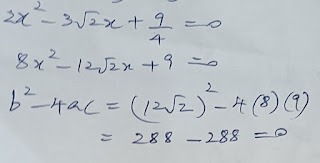 2x² - 3√2x + 9/4 = 0
8x² - 12√2x + 9 = 0
b² - 4ac = (12√2)² - 4(8)(9)
= 288 - 288 = 0